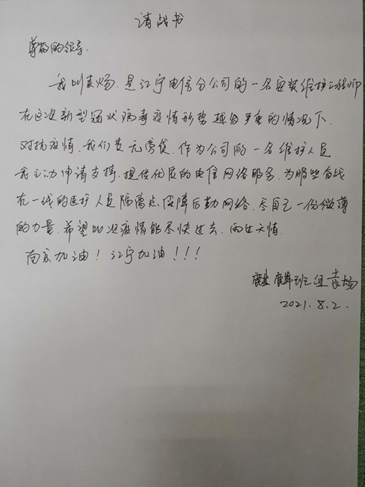 请战书
尊敬的领导:
我叫袁杨,是江宁电信分公司的一名安装维护工程师
在这次新型冠状病毒疫情形势越发严重的情况下
对抗疫情,我们责无旁贷,作为公司的一名维护人员
我主动申请支援,提供优质的电信网络服务,为那些奋战
在一线的医护人员隔离点,保障后勤网络,尽自己一份微薄
的力量,希望此次疫情能尽快过去,雨过天晴.
南京加油!江宁加油!!!
麒麟班组袁杨
2021.8.2.